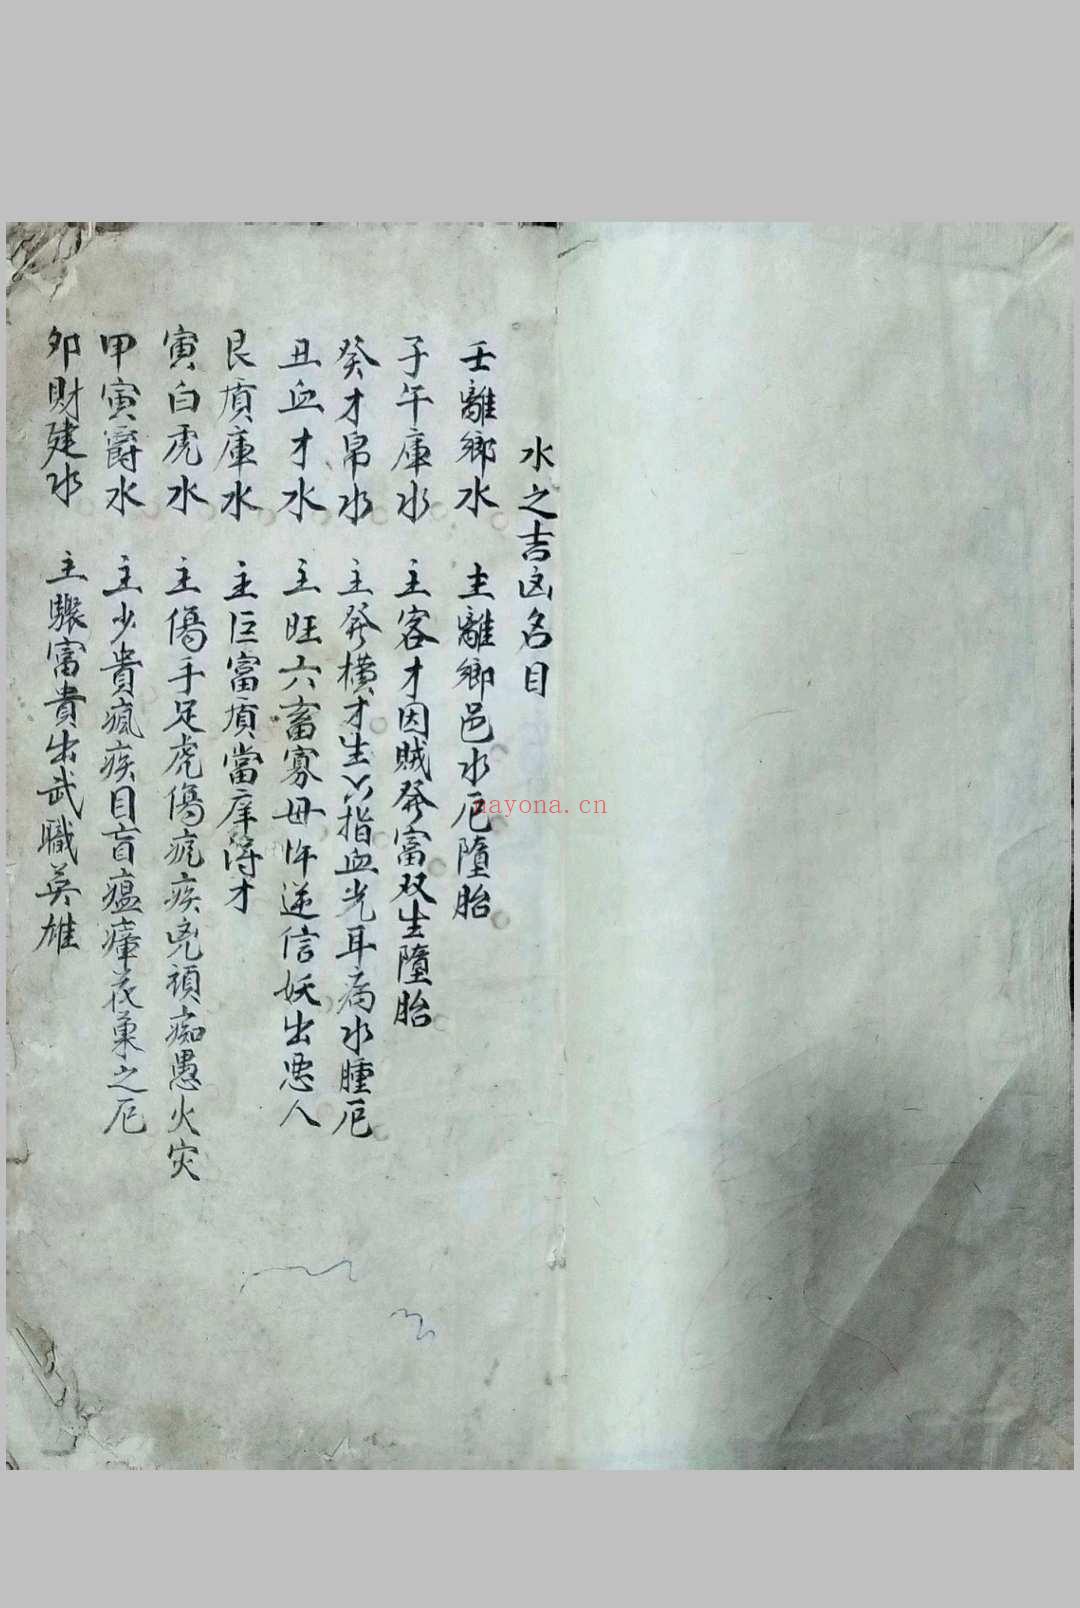 水之吉凶名目
壬離鄉水 主離鄉邑水厄墮胎
子午庫水 主客才因賊發富双生墮胎
癸才帛水 主發橫才生六指血光耳病水腫厄
丑血才水 主旺六畜寡母忤逆信妖出恶人
艮庫水 主巨富當庠得才
寅白虎水 主傷手足虎傷疾兇頑痴愚火灾
甲寅爵水 主少貴瘋疾目盲瘟瘴花菓之厄
卯財建水 主驟富貴出武職英雄
nayona.cn